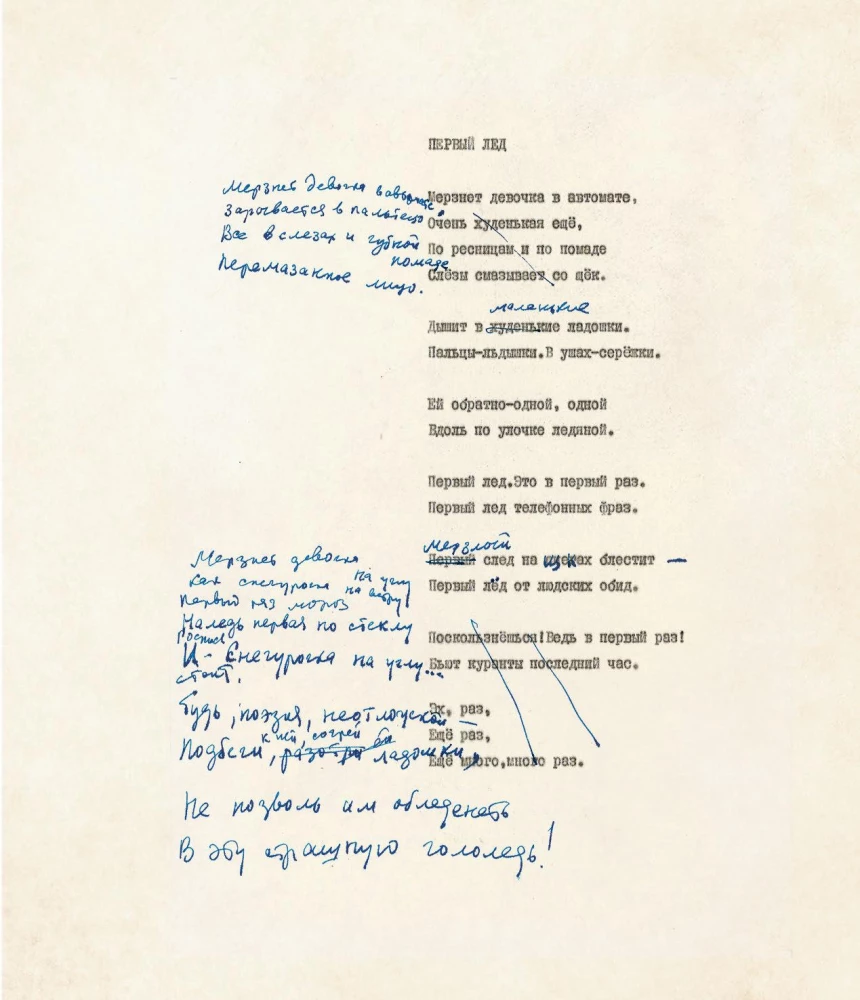 ПЕРВЫЙ ЛЕД
Мерзнет девочка в автомате,
зарывается в пальтецо
Все в слезах и губной
помаде
Перемазанное лицо.
Мерзнет девочка в автомате,
Очень худенькая ещё,
По ресницам и по помаде
Слёзы смазывает со щёк.
маленькие
Дышит в худенькие ладошки.
Пальцы-льдышки.В ушах-серёжки.
Ей обратно-одной, одной
Вдоль по улочке ледяной.
Первый лед.Это в первый раз.
Первый лед телефонных фраз.
мерзлый
Первый след на щеках блестит —
Первый лёд от людских обид.
Поскользнёшься!Ведь в первый раз!
Бьют куранты последний час.
Эх, раз,
Ещё раз,
Ещё много,много раз.
Мерзнет девочка
как снегурочка на углу
Первый раз мороз
Наледь первая по стеклу
И - Снегурочка на углу...
стоит.
Будь, поэзия, неотлучкой —
к ней, согрей
Подбеги, разотри ладошки,
Не позволь им обледенеть
В эту страшную гололедь!